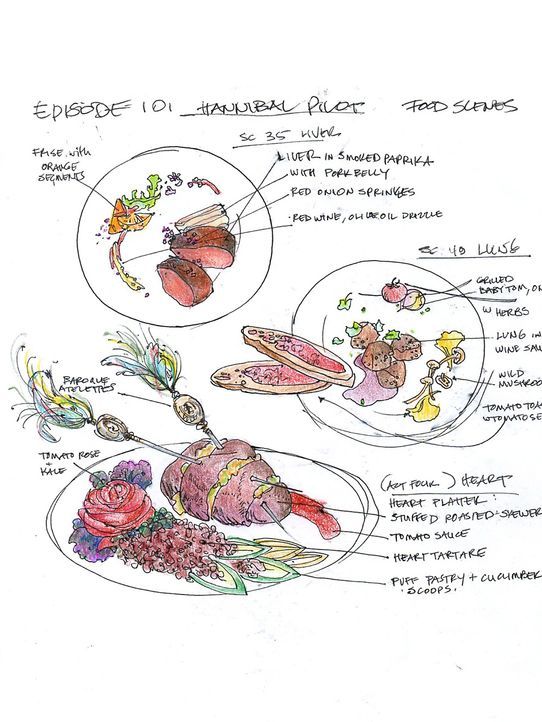 EPISODE 101 HANNIBAL PILOT FOOD SCENES
SC 35 LIVER
FRISE with
ORANGE
SEGMENTS
LIVER IN SMOKED PAPRIKA
WITH PORK BELLY
RED ONION SPRINGES
RED WINE, OLIVE OIL DRIZZLE
SC. 49 LUNG
GRILLED
BABY TOM, ON
W HERBS
LUNG IN
WINE SAU
WILD
MUSHROO
TOMATO TOA
W TOMATO SE
BAROQUE
ATELETTES
TOMATO ROSE
+ KALE
(ACT FOUR) HEART
HEART PLATTER:
STUFFED ROASTED + SKEWER
TOMATO SAUCE
HEART TARTARE
PUFF PASTRY + CUCUMBER
SCOOPS.